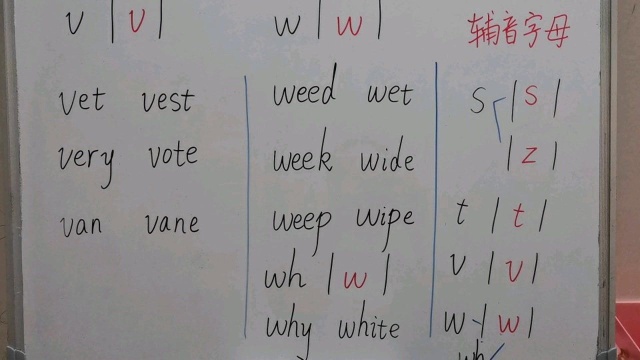 v |v|
vet vest
very vote
van vane
w |w|
weed wet
week wide
weep wipe
wh |w|
why white
辅音字母
s |s|
|z|
t |t|
v |v|
w |w|
wh